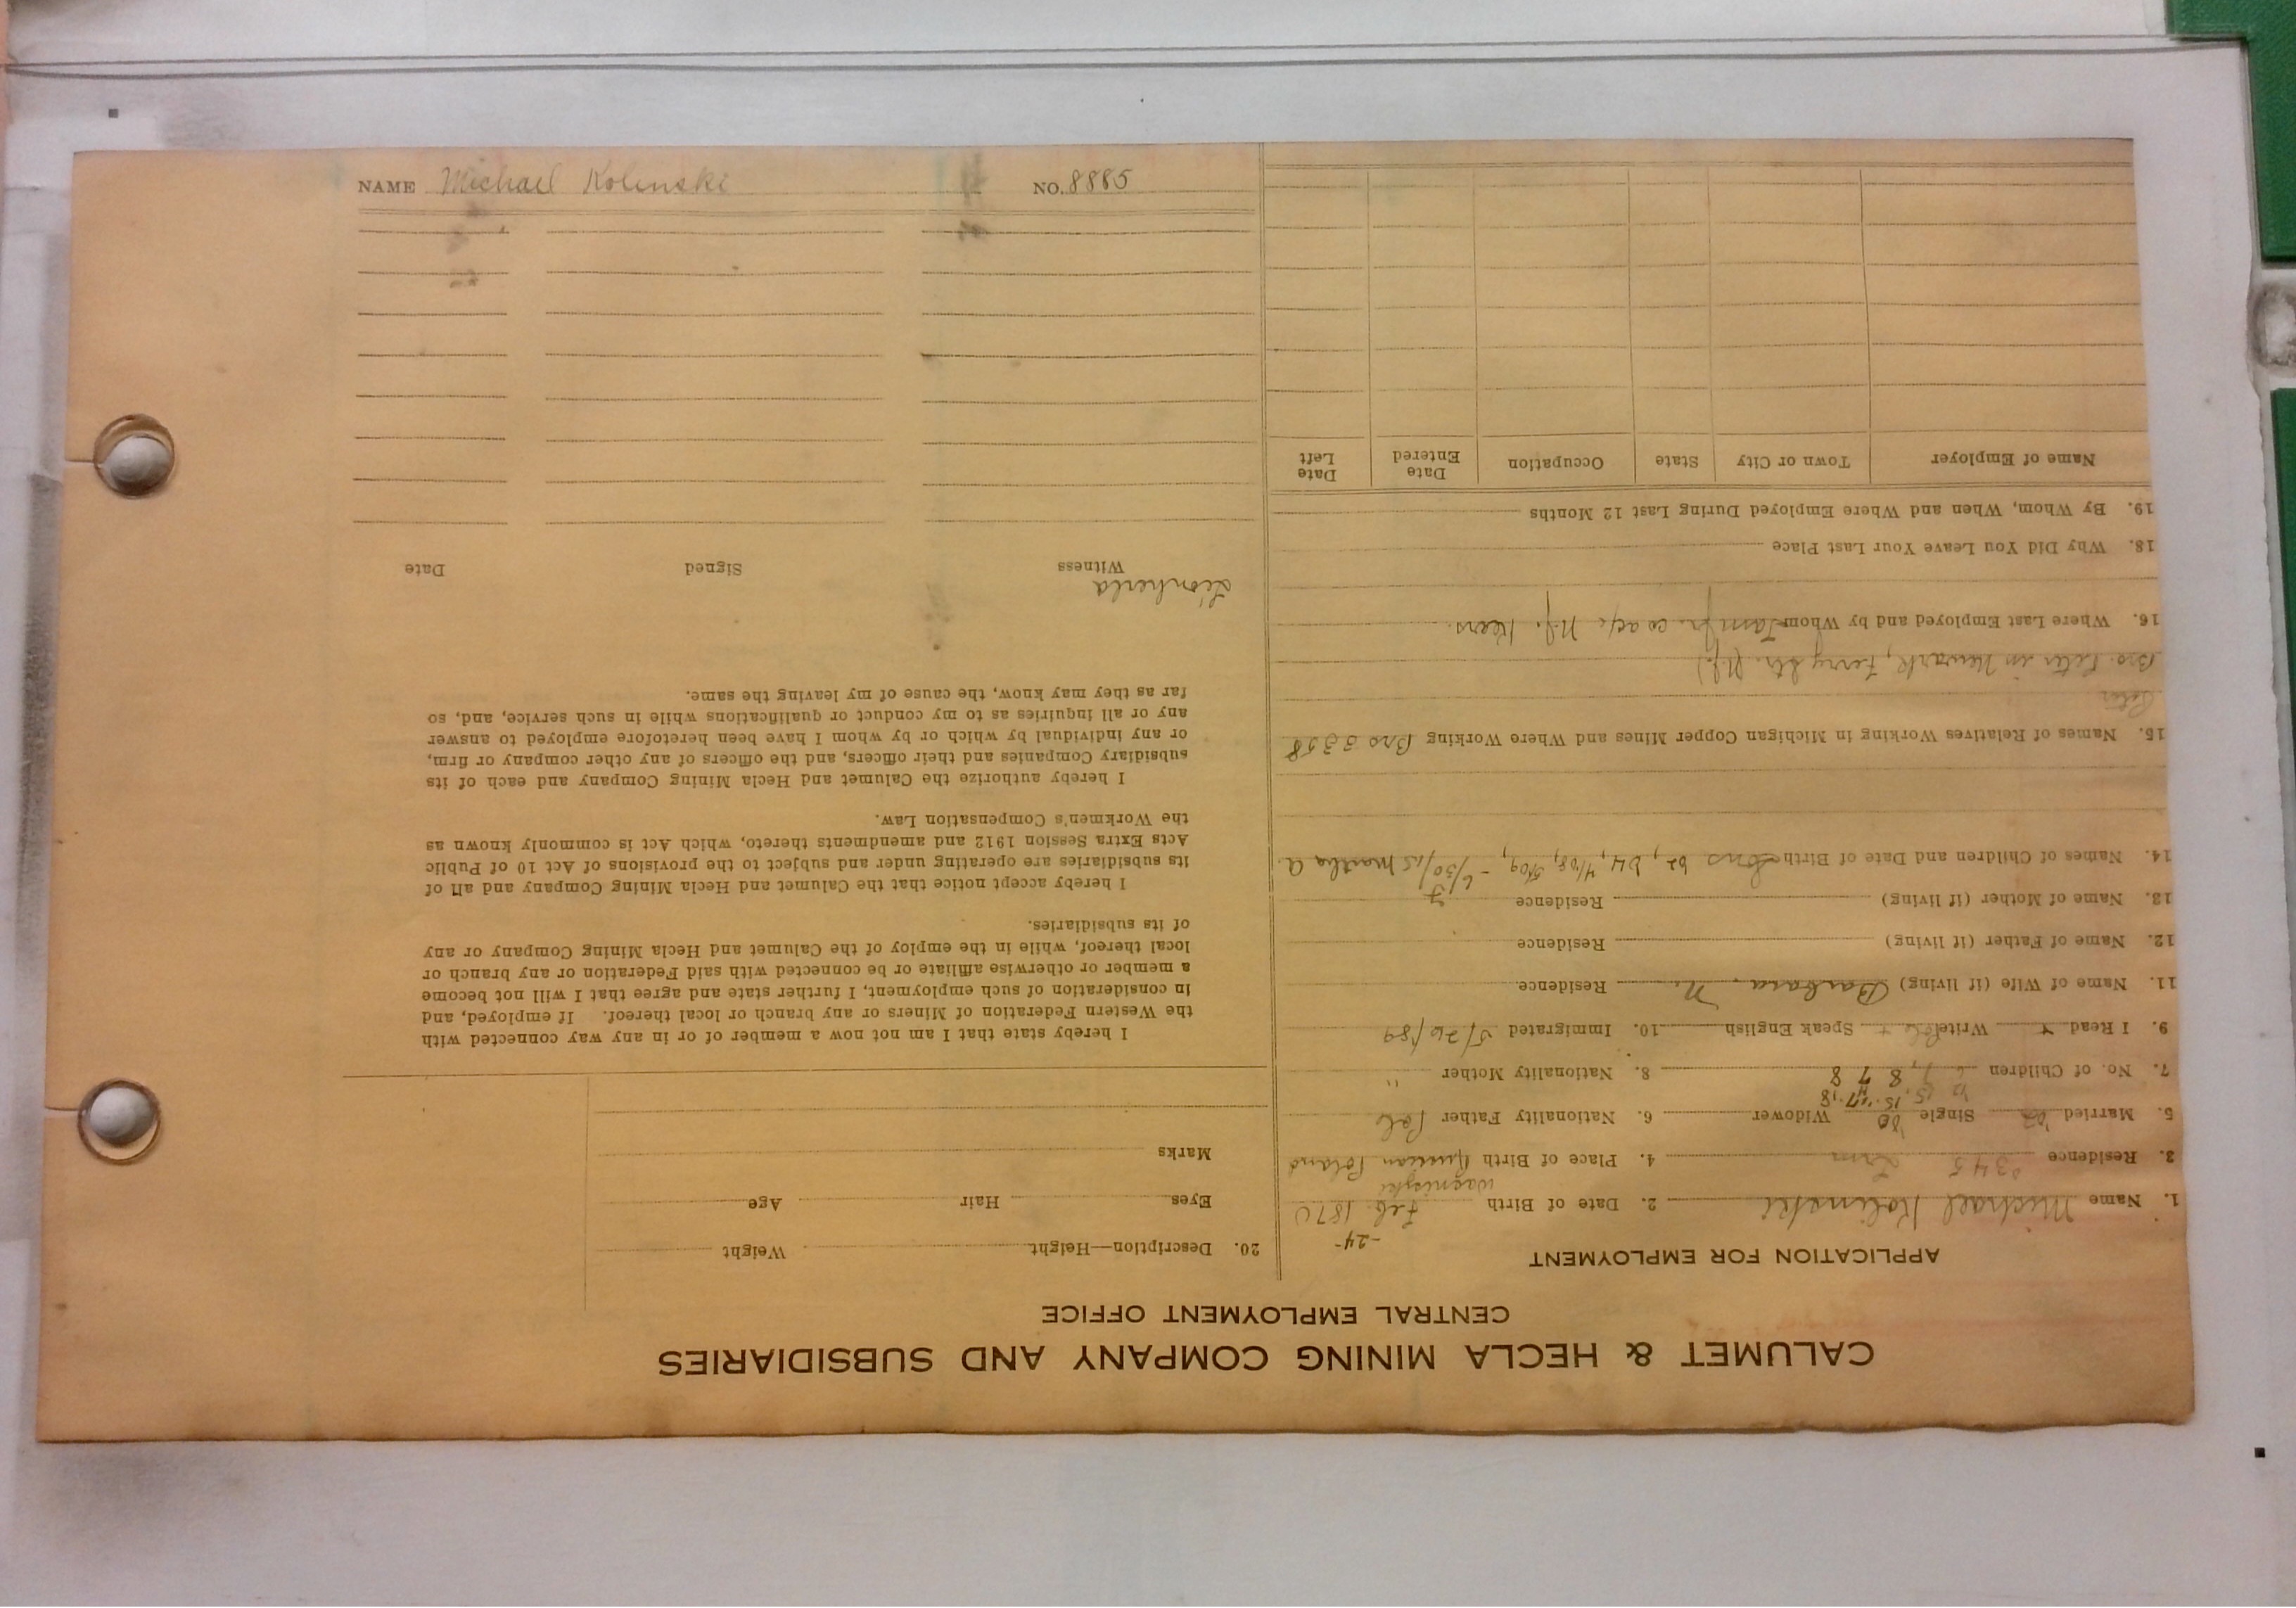 CALUMET & HECLA MINING COMPANY AND SUBSIDIARIES
CENTRAL EMPLOYMENT OFFICE
APPLICATION FOR EMPLOYMENT
1. Name Michael Kolinski 2. Date of Birth Feb -24- 1870
3. Residence 4. Place of Birth Russian Poland
5. Married Single Widower 6. Nationality Father Pol
7. No. of Children 8. Nationality Mother "
9. I Read Write Speak English 10. Immigrated 5/26/89
11. Name of Wife (if living) Barbara Residence
12. Name of Father (if living) Residence
13. Name of Mother (if living) Residence
14. Names of Children and Date of Birth Sons 02, 04, 4/08, 5/09, - 6/30/15 Martha A
15. Names of Relatives Working in Michigan Copper Mines and Where Working Bro 3358
Peter
Bro. Peter in Newark, Ferry Str. (N.J.)
16. Where Last Employed and by Whom N.J.
18. Why Did You Leave Your Last Place
19. By Whom, When and Where Employed During Last 12 Months
Name of Employer Town or City State Occupation Date Entered Date Left
20. Description—Height Weight
Eyes Hair Age
Marks
I hereby state that I am not now a member of or in any way connected with
the Western Federation of Miners or any branch or local thereof. If employed, and
in consideration of such employment, I further state and agree that I will not become
a member or otherwise affiliate or be connected with said Federation or any branch or
local thereof, while in the employ of the Calumet and Hecla Mining Company or any
of its subsidiaries.
I hereby accept notice that the Calumet and Hecla Mining Company and all of
its subsidiaries are operating under and subject to the provisions of Act 10 of Public
Acts Extra Session 1912 and amendments thereto, which Act is commonly known as
the Workmen's Compensation Law.
I hereby authorize the Calumet and Hecla Mining Company and each of its
subsidiary Companies and their officers, and the officers of any other company or firm,
or any individual by which or by whom I have been heretofore employed to answer
any or all inquiries as to my conduct or qualifications while in such service, and, so
far as they may know, the cause of my leaving the same.
Witness Signed Date
NAME Michael Kolinski NO. 8885